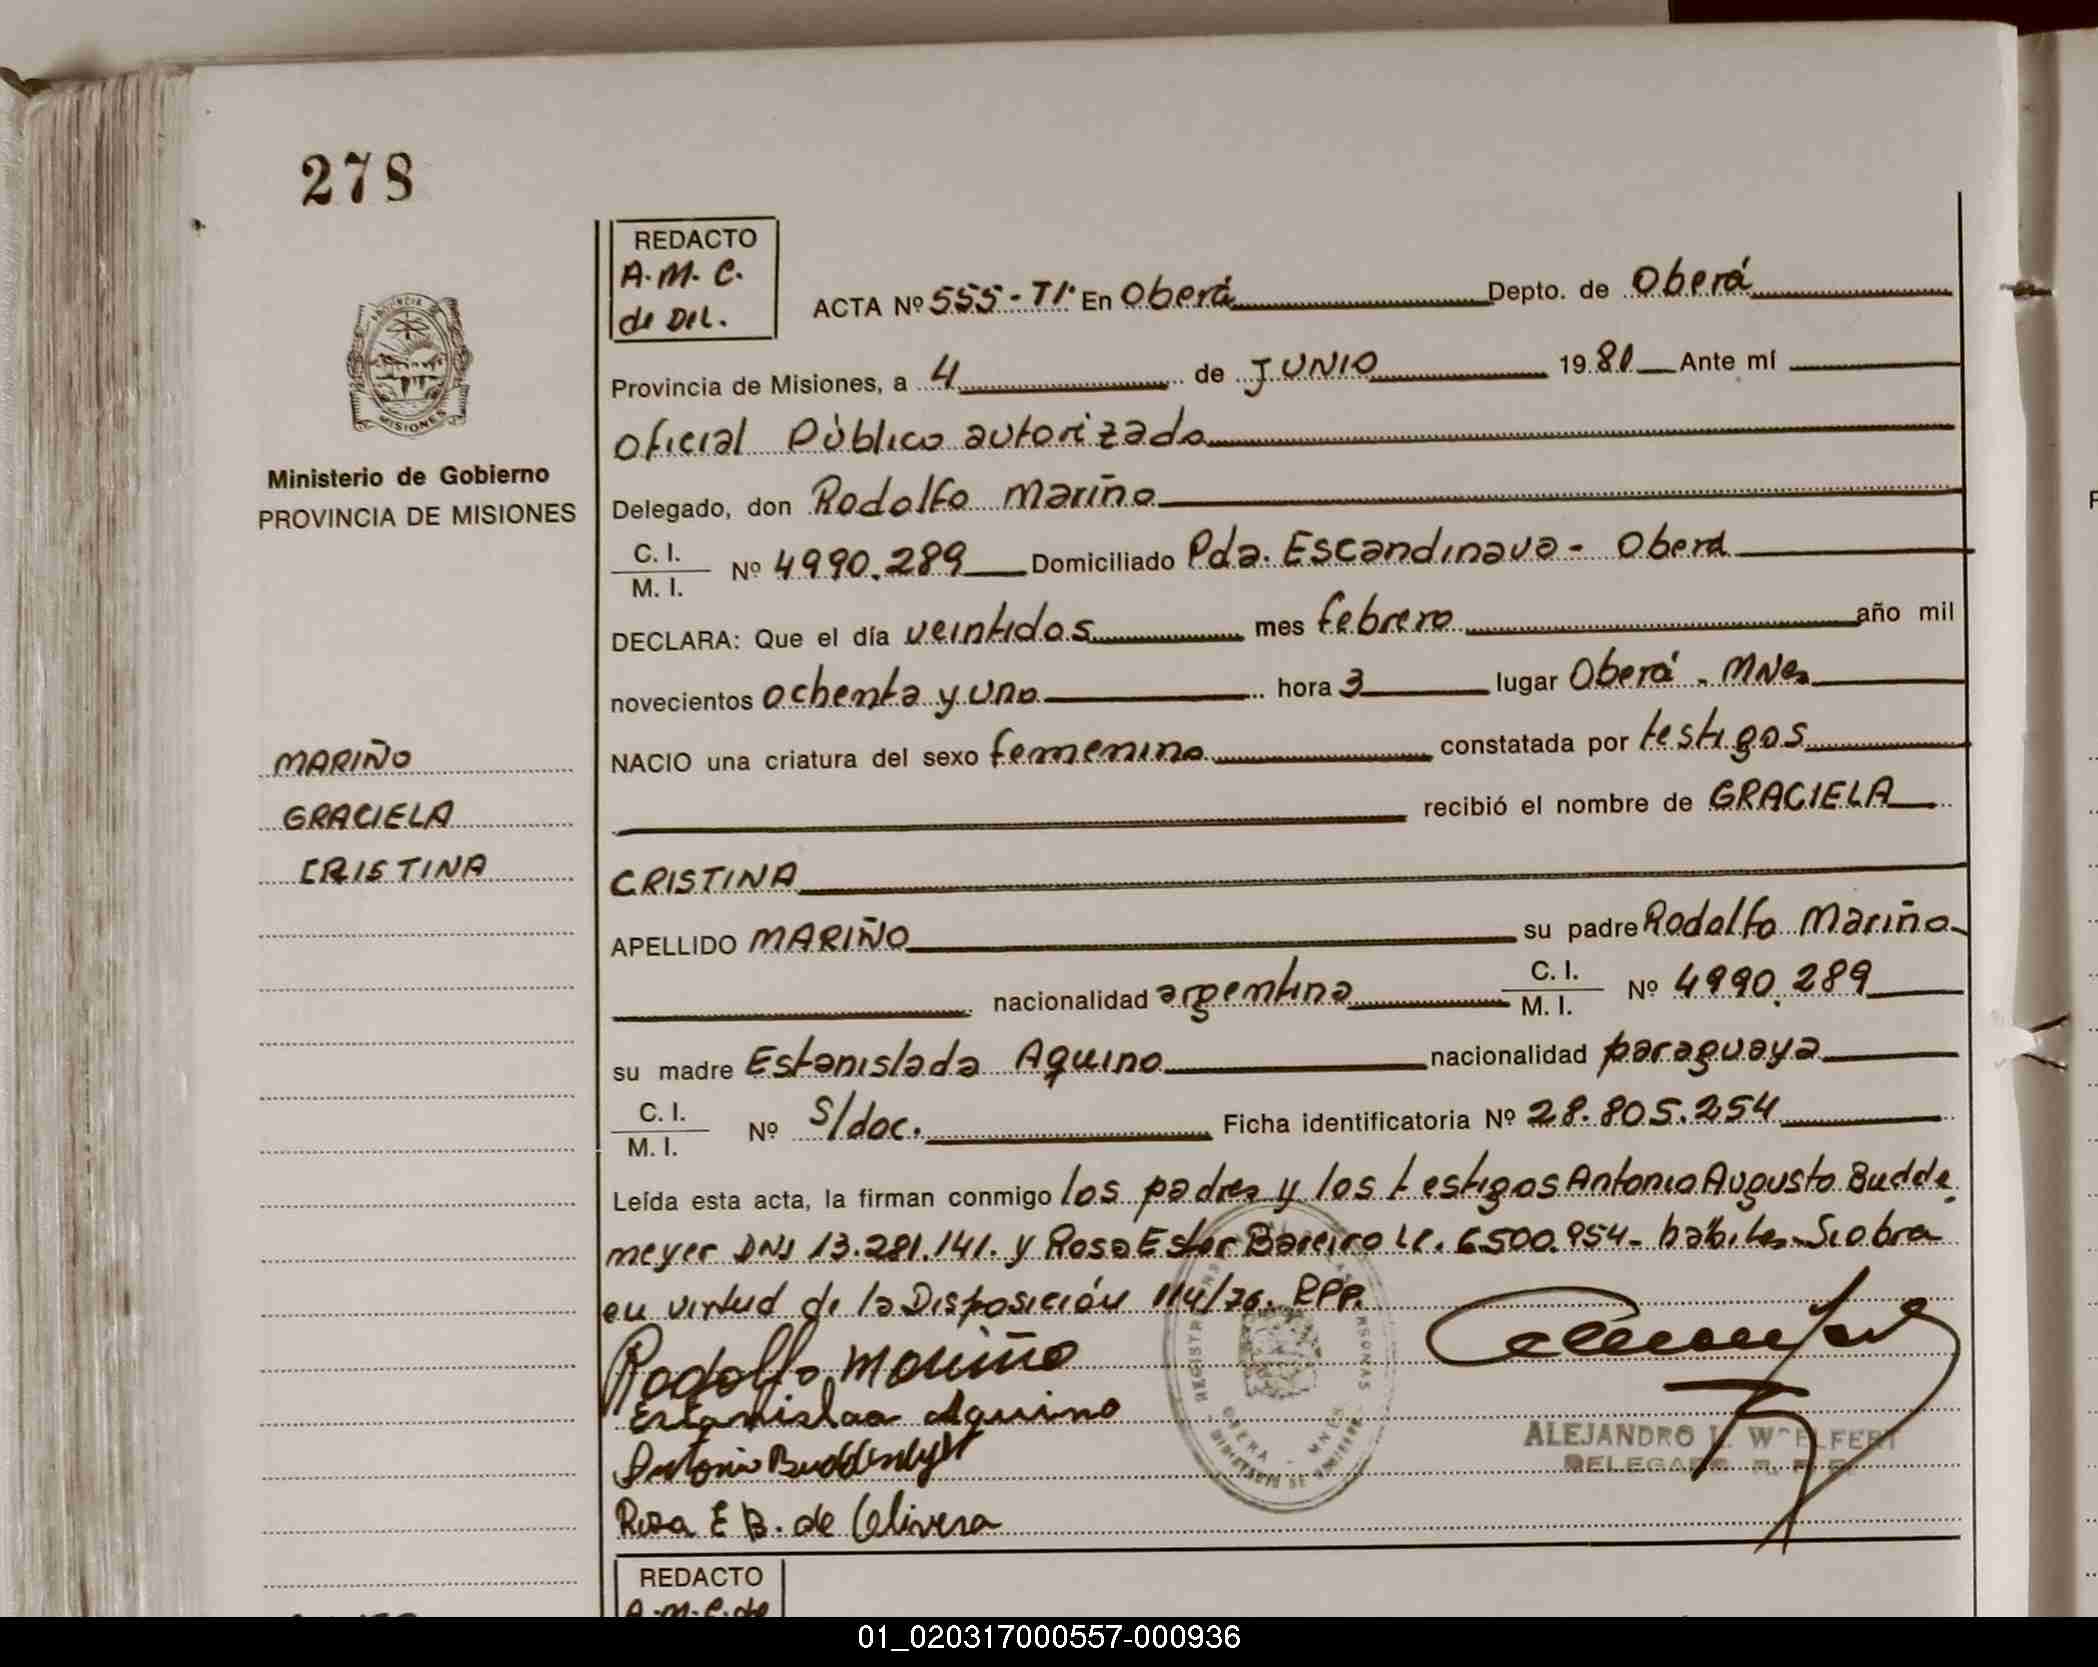 278
REDACTO
A.M.C.
de DEL.
ACTA Nº 555-TI. En Oberá Depto. de Oberá
Provincia de Misiones, a 4 de JUNIO 1981 Ante mí
Oficial Público autorizado
Ministerio de Gobierno
PROVINCIA DE MISIONES
Delegado, don Rodolfo Mariño
C. I.
M. I. Nº 4990.289 Domiciliado Pda. Escandinava - Oberá
DECLARA: Que el día veintidos mes febrero año mil
novecientos ochenta y uno hora 3 lugar Oberá - MNes
MARIÑO
GRACIELA
CRISTINA
NACIO una criatura del sexo femenino constatada por testigos
recibió el nombre de GRACIELA
CRISTINA
APELLIDO MARIÑO su padre Rodolfo Mariño
nacionalidad argentina C. I.
M. I. Nº 4990.289
su madre Estanislada Aquino nacionalidad paraguaya
C. I.
M. I. Nº S/doc. Ficha identificatoria Nº 28.805.254
Leída esta acta, la firman conmigo los padres y los testigos Antonio Augusto Budde
meyer DNI 13.281.141. y Rosa Ester Bareiro LC. 6500.954- hábiles. Se obra
en virtud de la Disposición 114/76. RPP.
Rodolfo Mariño
Estanislaa Aquino
Antonio Buddemeyer
Rosa E B. de Olivera
ALEJANDRO L. WOELFERT
DELEGADO R. P. P.
REDACTO
A.M.C. de
01_020317000557-000936